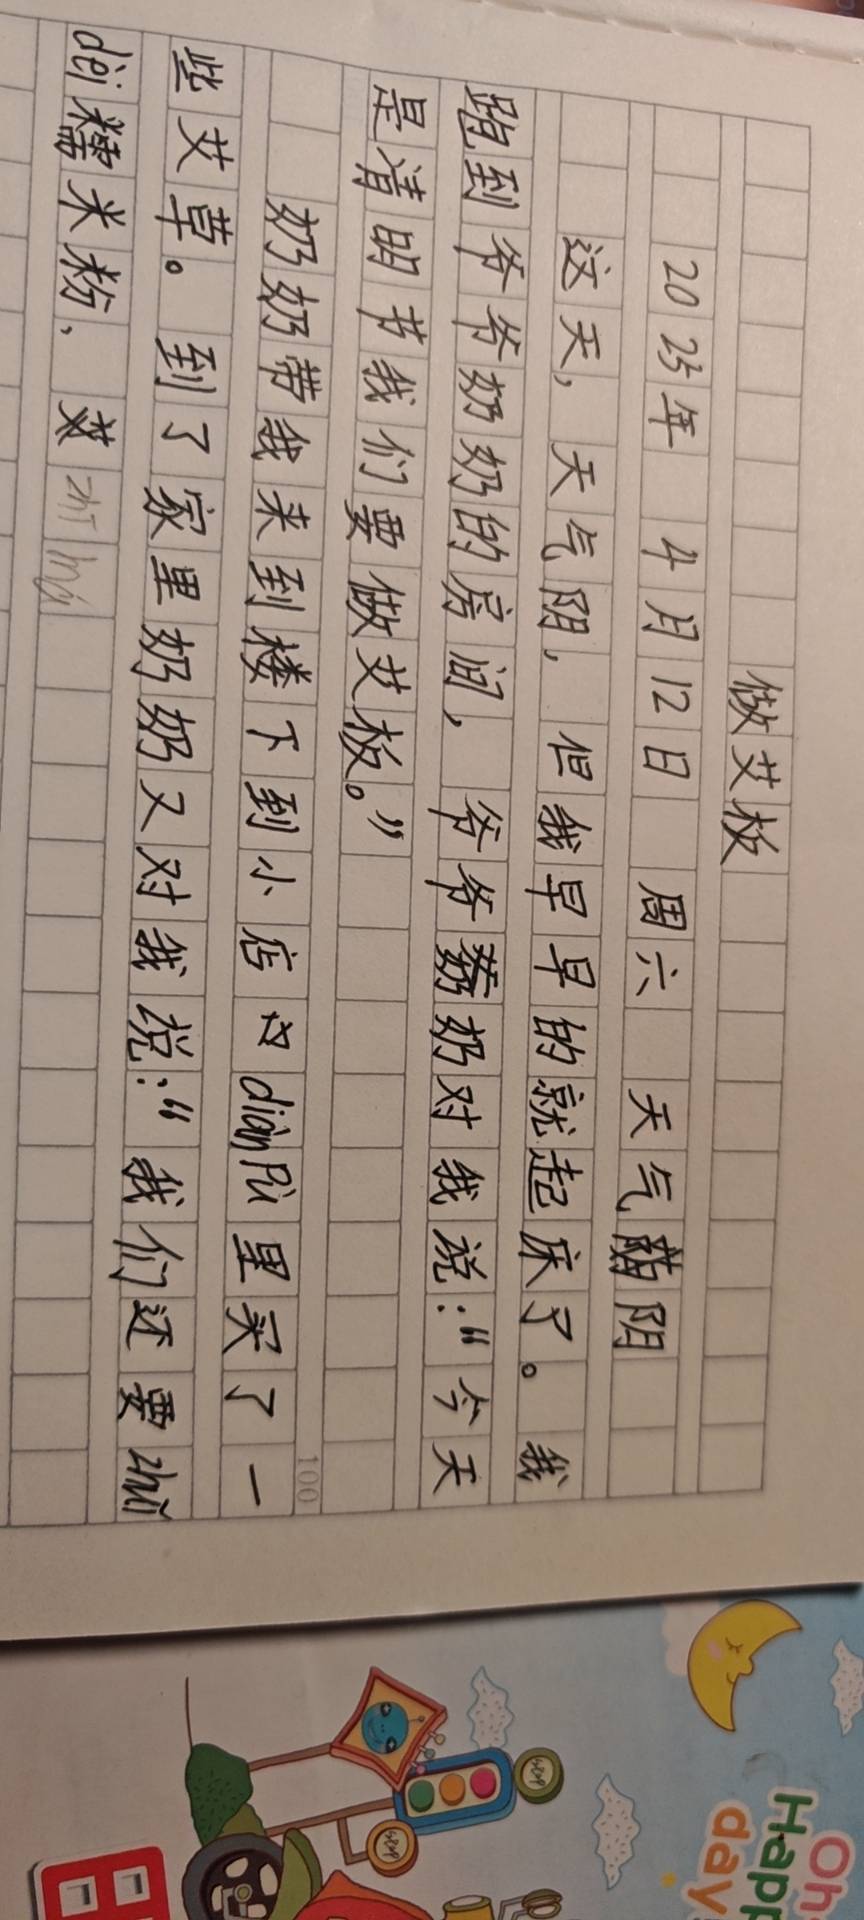 做艾板
2025年 4月12日 周六 天气阴
这天，天气阴，但我早早的就起床了。我
跑到爷爷奶奶的房间，爷爷奶奶对我说：“今天
是清明节我们要做艾板。”
奶奶带我来到楼下到小店diànpù里买了一
些艾草。到了家里奶奶又对我说：“我们还要zhǔn
dèi糯米粉、
100
Oh
Happ
day
STOP
STOP